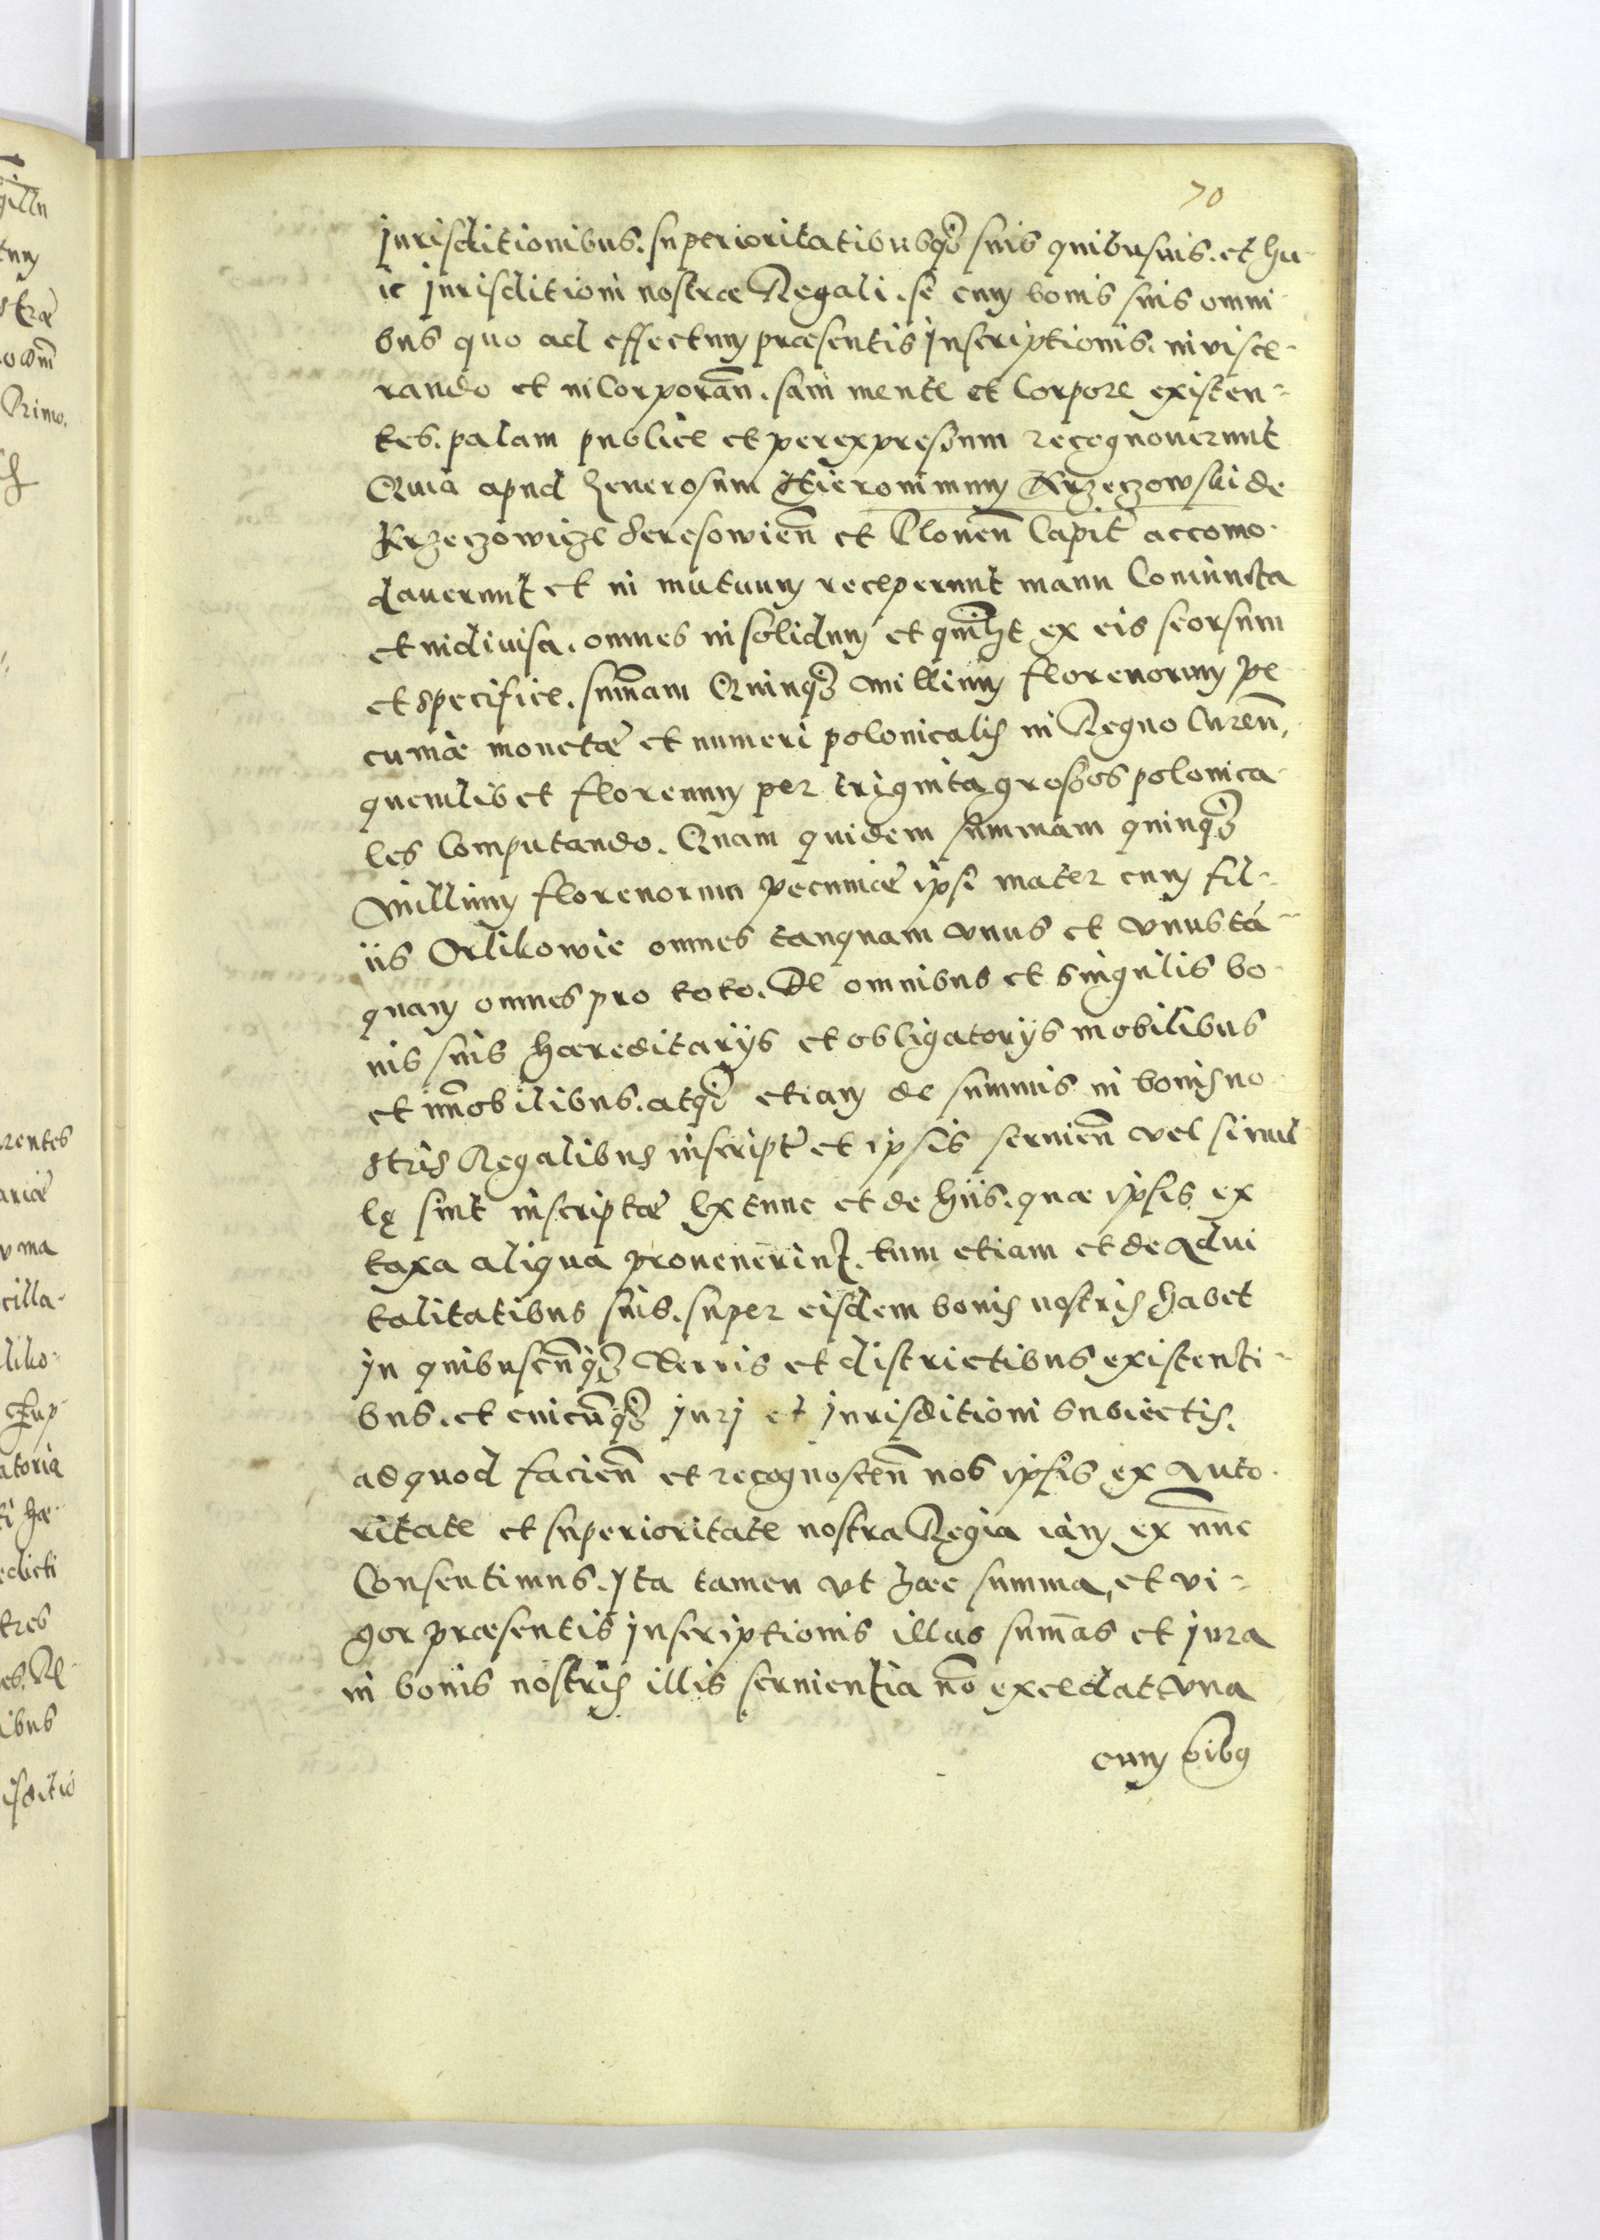 70
Jurisditionibus. superioritatibusq3 suis quibusuis. et hu-
ic Jurisditioni nostrae Regali. se cum bonis suis omni
bus quo ad effectum praesentis Inscriptionis. inviscé-
rando et incorporan̄. sani mente et corpore existen-
tes. palam publice et per expressum recognoverunt
Quia apud Generosum Hieronimum Krzeczowski de
Krzeczowicze Beresowien̄ et Clonen̄ Capit accomo-
daverunt et in mutuum receperunt manu coniuncta
et indivisa. omnes in solidum et qui̅lt ex eis seorsum
et specifice. sum̄am Quinq3 Millium florenorum pe
cuniae monetae et numeri polonicalis in Regno curen̄,
quemlibet florenum per triginta grossos polonica-
les computando. Quam quidem summam quinq3
Millium florenorum pecuniae ipsi mater cum fil-
iis Orlikowie omnes tanquam vnus et vnus tā-
quam omnes pro toto. De omnibus et singulis bo-
nis suis haereditarijs et obligatorijs mobilibus
et im̄obilibus. atq3 etiam de summis in bonis no
stris Regalibus inscript et ipsis servien̄ vel simul
lę sint inscriptae Extunc et de hiis. quae ipsis ex
taxa aliqua provenerint. tum etiam et de Advi
talitatibus suis. super eisdem bonis nostris habet
in quibuscun̄q3 terris et districtibus existenti-
bus. et cuicūq3 Juri et Jurisditioni subiectis.
ad quod facien̄ et recognoscen̄ nos ipsis ex Auto-
ritate et superioritate nostra Regia iam ex nūc
Consentimus. Ita tamen vt haec summa, et vi-
gor praesentis Inscriptionis illas sum̄as et Jura
in bonis nostris illis servientia nō excedat vna
cum oibq